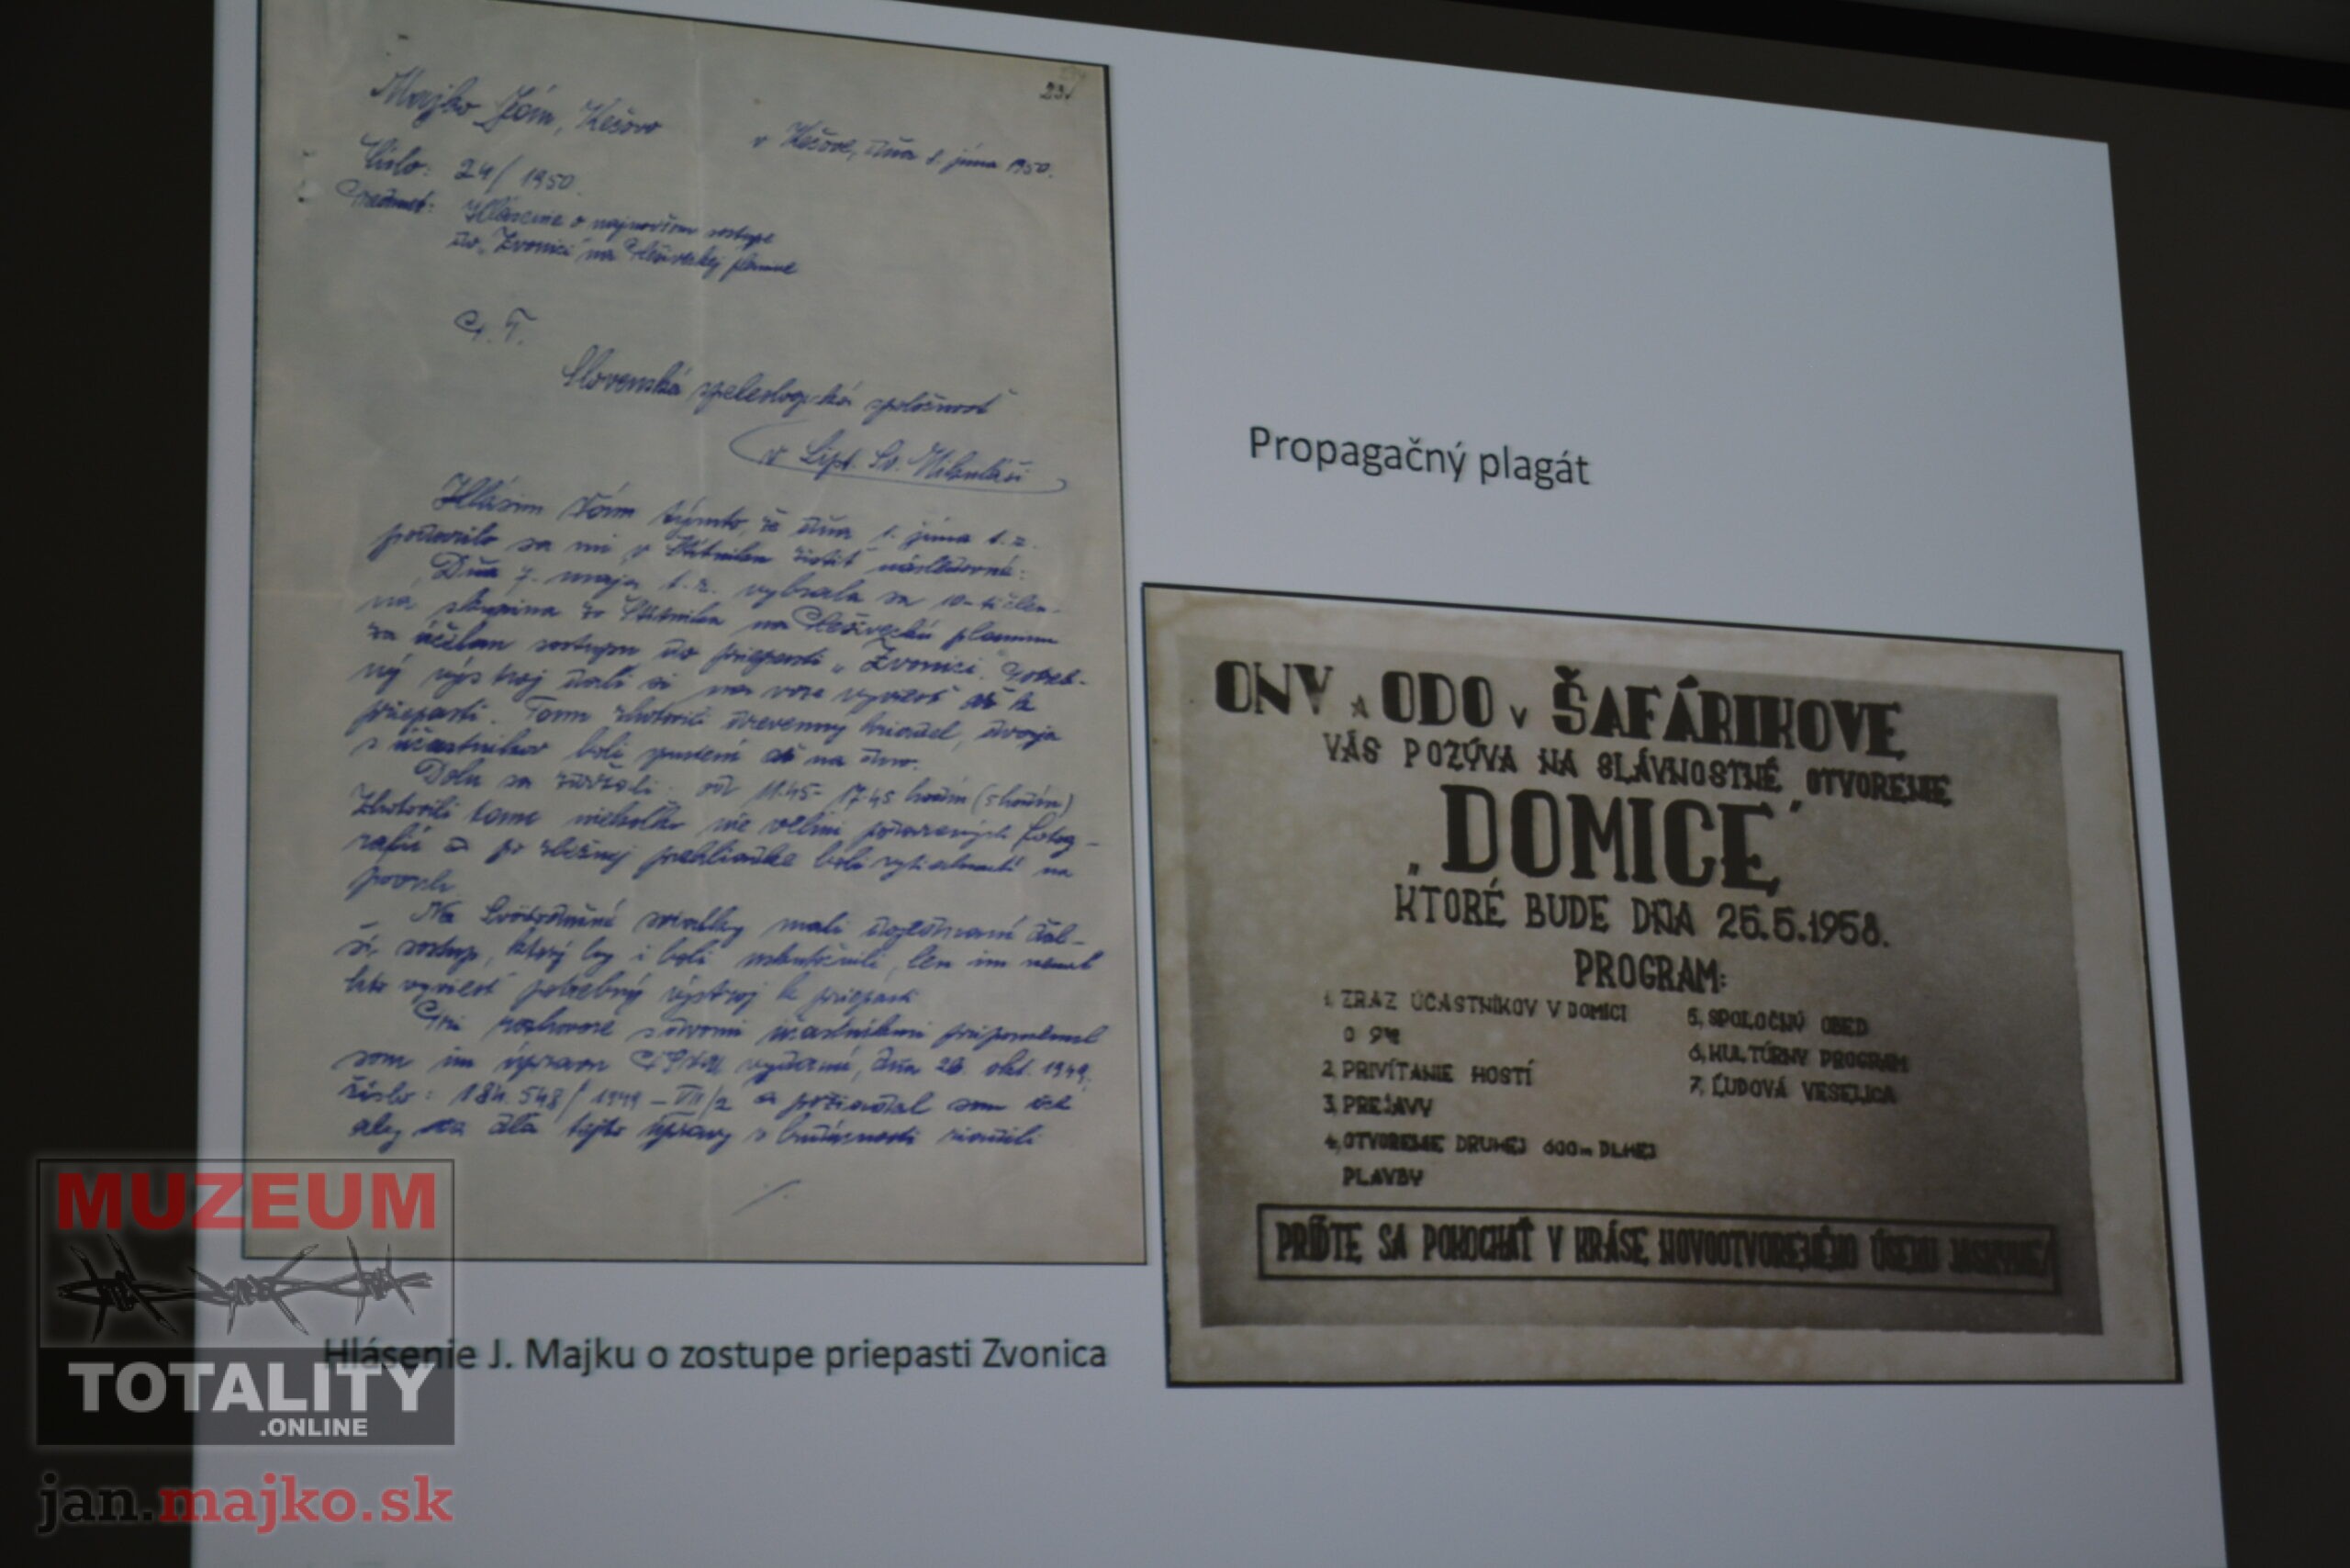 231
Majko Ján, Kečovo
v Kečove, dňa 2. júna 1950.
Číslo: 24/1950.
Predmet: Hlásenie o najnovšom zostupe
do „Zvonici" na Plešiveckej planine
P. T.
Slovenská speleologická spoločnosť
v Lipt. Sv. Mikuláši
Hlásim Vám týmto, že dňa 1. júna t. r.
podarilo sa mi v Štítniku zistiť následovné:
Dňa 7. mája t. r. vybrala sa 10-tičlen-
ná skupina zo Štítnika na Plešiveckú planinu
za účelom zostupu do priepasti „Zvonici". Potreb-
ný výstroj dali si na voze vyviezť až k
priepasti. Tam zhotovili drevenný hriadel, dvaja
z účastníkov boli pustení až na dno.
Dolu sa zdržali od 11.45 - 17.45 hodín
Zhotovili tam niekoľko nie veľmi podarených fotog-
rafií a po zbežnej prehliadke boli vytiahnutí na
povrch.
Na Svätodušné sviatky mali ďal-
ší zostup, ktorý by i boli uskutočnili, len im nemal
kto vyviezť potrebný výstroj k priepasti
Pri rozhovore s dvomi účastníkmi pripomenul
som im úpravu vydanú dňa 26. okt. 1949,
číslo: 184.548/1949 - VII/2 a požiadal som ich
aby sa dľa tejto úpravy v budúcnosti riadili
./.
Hlásenie J. Majku o zostupe priepasti Zvonica
Propagačný plagát
ONV A ODO V ŠAFÁRIKOVE
VÁS POZÝVA NA SLÁVNOSTNÉ OTVORENIE
„DOMICE"
KTORÉ BUDE DŇA 25.5.1958.
PROGRAM:
1. ZRAZ ÚČASTNÍKOV V DOMICI
O 9H
2. PRIVÍTANIE HOSTÍ
3. PREJAVY
4. OTVORENIE DRUHEJ 600m DLHEJ
PLAVBY
5. SPOLOČNÝ OBED
6. KULTÚRNY PROGRAM
7. ĽUDOVÁ VESELICA
PRÍĎTE SA POKOCHAŤ V KRÁSE NOVOOTVORENÉHO ÚSEKU JASKYNE!
MUZEUM
TOTALITY
.ONLINE
jan.majko.sk